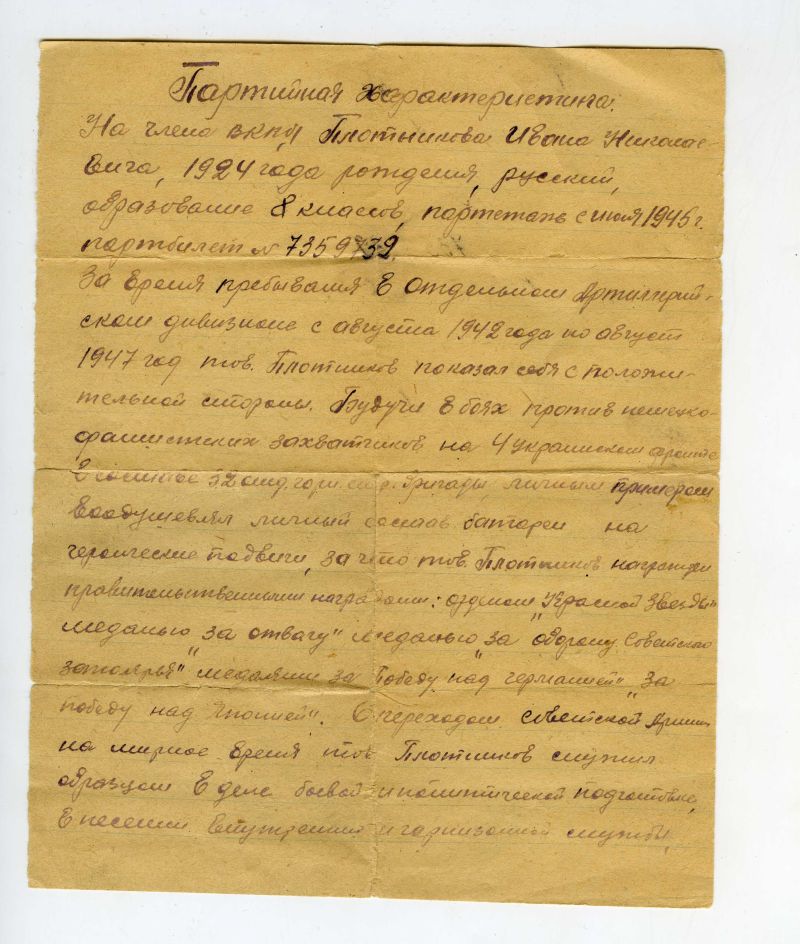 Партийная характеристика.
На члена ВКП(б) Плотникова Ивана Николае-
вича, 1924 года рождения, русский,
образование 8 классов, партстаж с июля 1945 г.
партбилет № 7359739.
За время пребывания в отдельном Артиллерий-
ском дивизионе с августа 1942 года по август
1947 год тов. Плотников показал себя с положи-
тельной стороны. Будучи в боях против немецко-
фашистских захватчиков на 4 Украинском фронте
в составе 32 бригады, личным примером
воодушевлял личный состав батареи на
героические подвиги, за что тов. Плотников награжден
правительственными наградами: орденом "Красной звезды"
медалью "За отвагу" медалью "За оборону Советского
заполярья" медалями За Победу над германией" "За
победу над Японией". С переходом Советской Армии
на мирное время тов Плотников служил
образцом в деле боевой и политической подготовке,
в несении внутренней и гарнизонной службы,